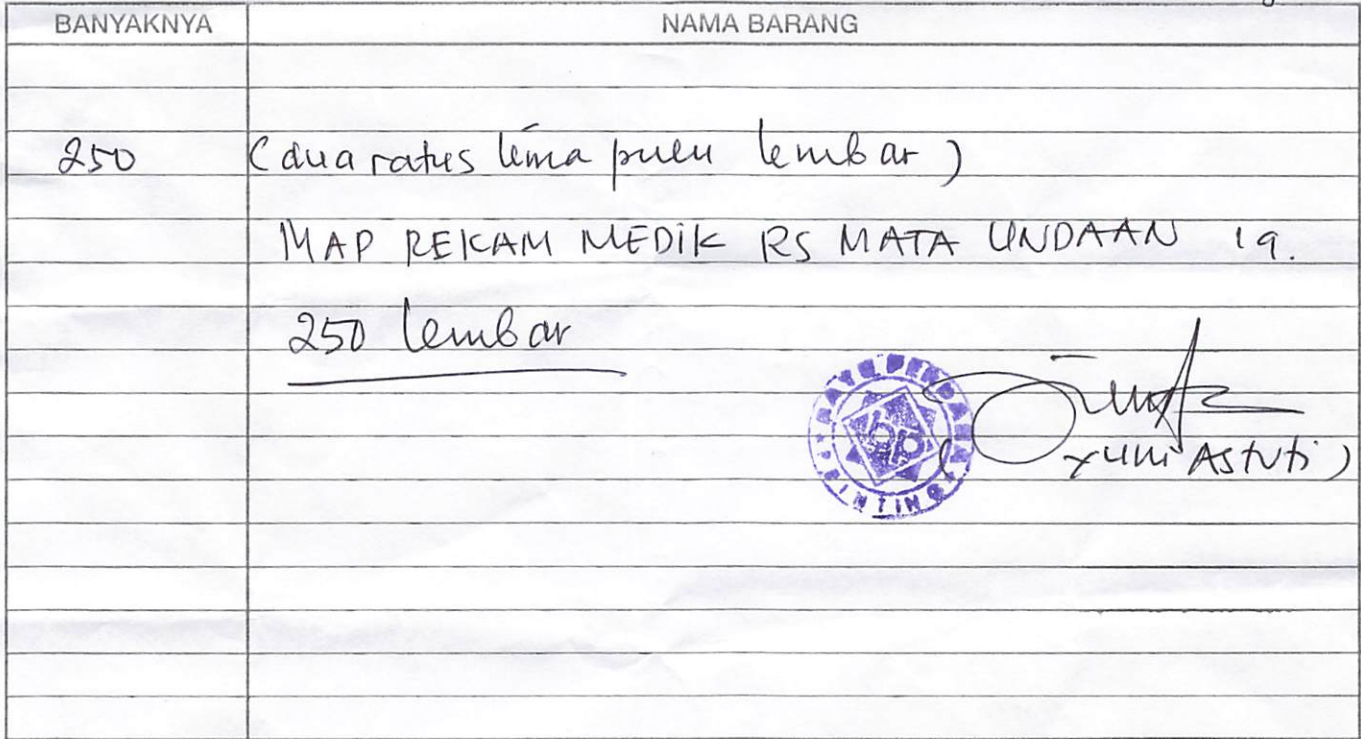 BANYAKNYA NAMA BARANG
250 (dua ratus lima puluh lembar)
MAP REKAM MEDIK RS MATA UNDAAN 19.
250 lembar
(Yuni Astuti)